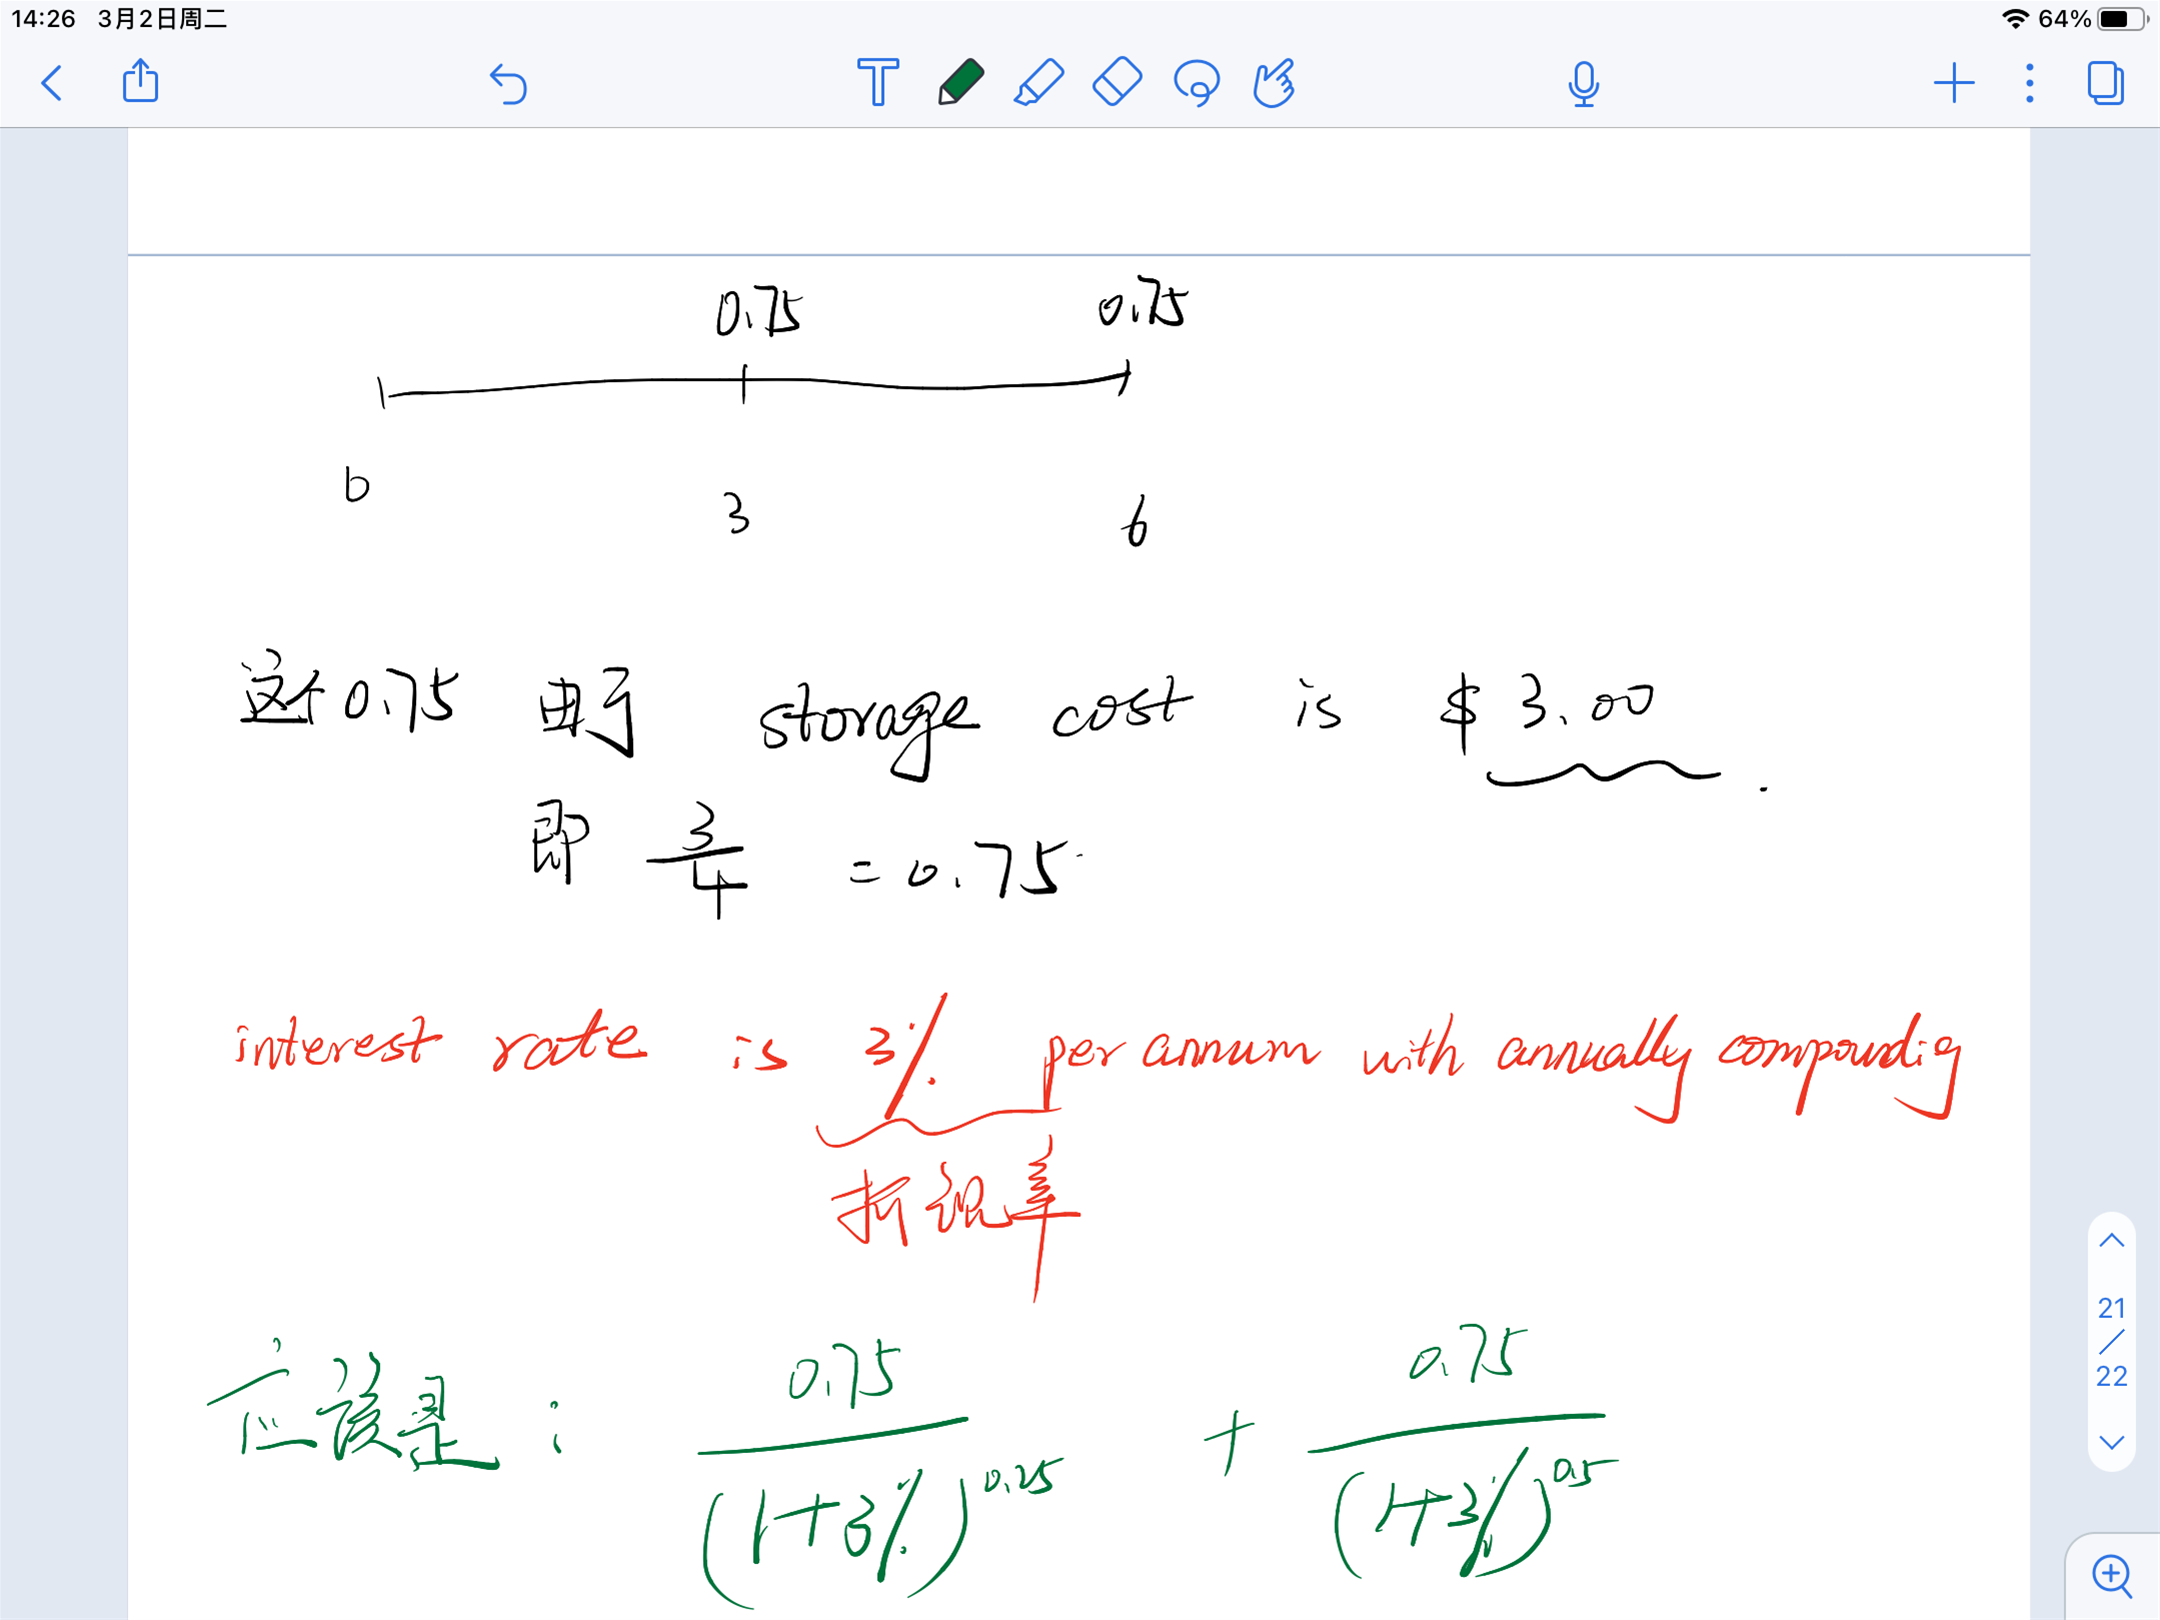 14:26 3月2日周二 64%
0.75 0.75
0 3 6
这个0.75 由于 storage cost is $3.00.
即 3/4 = 0.75
interest rate is 3% per annum with annually compoundig
折现率
应该是: 0.75/(1+3%)^0.25 + 0.75/(1+3%)^0.5
21
/
22